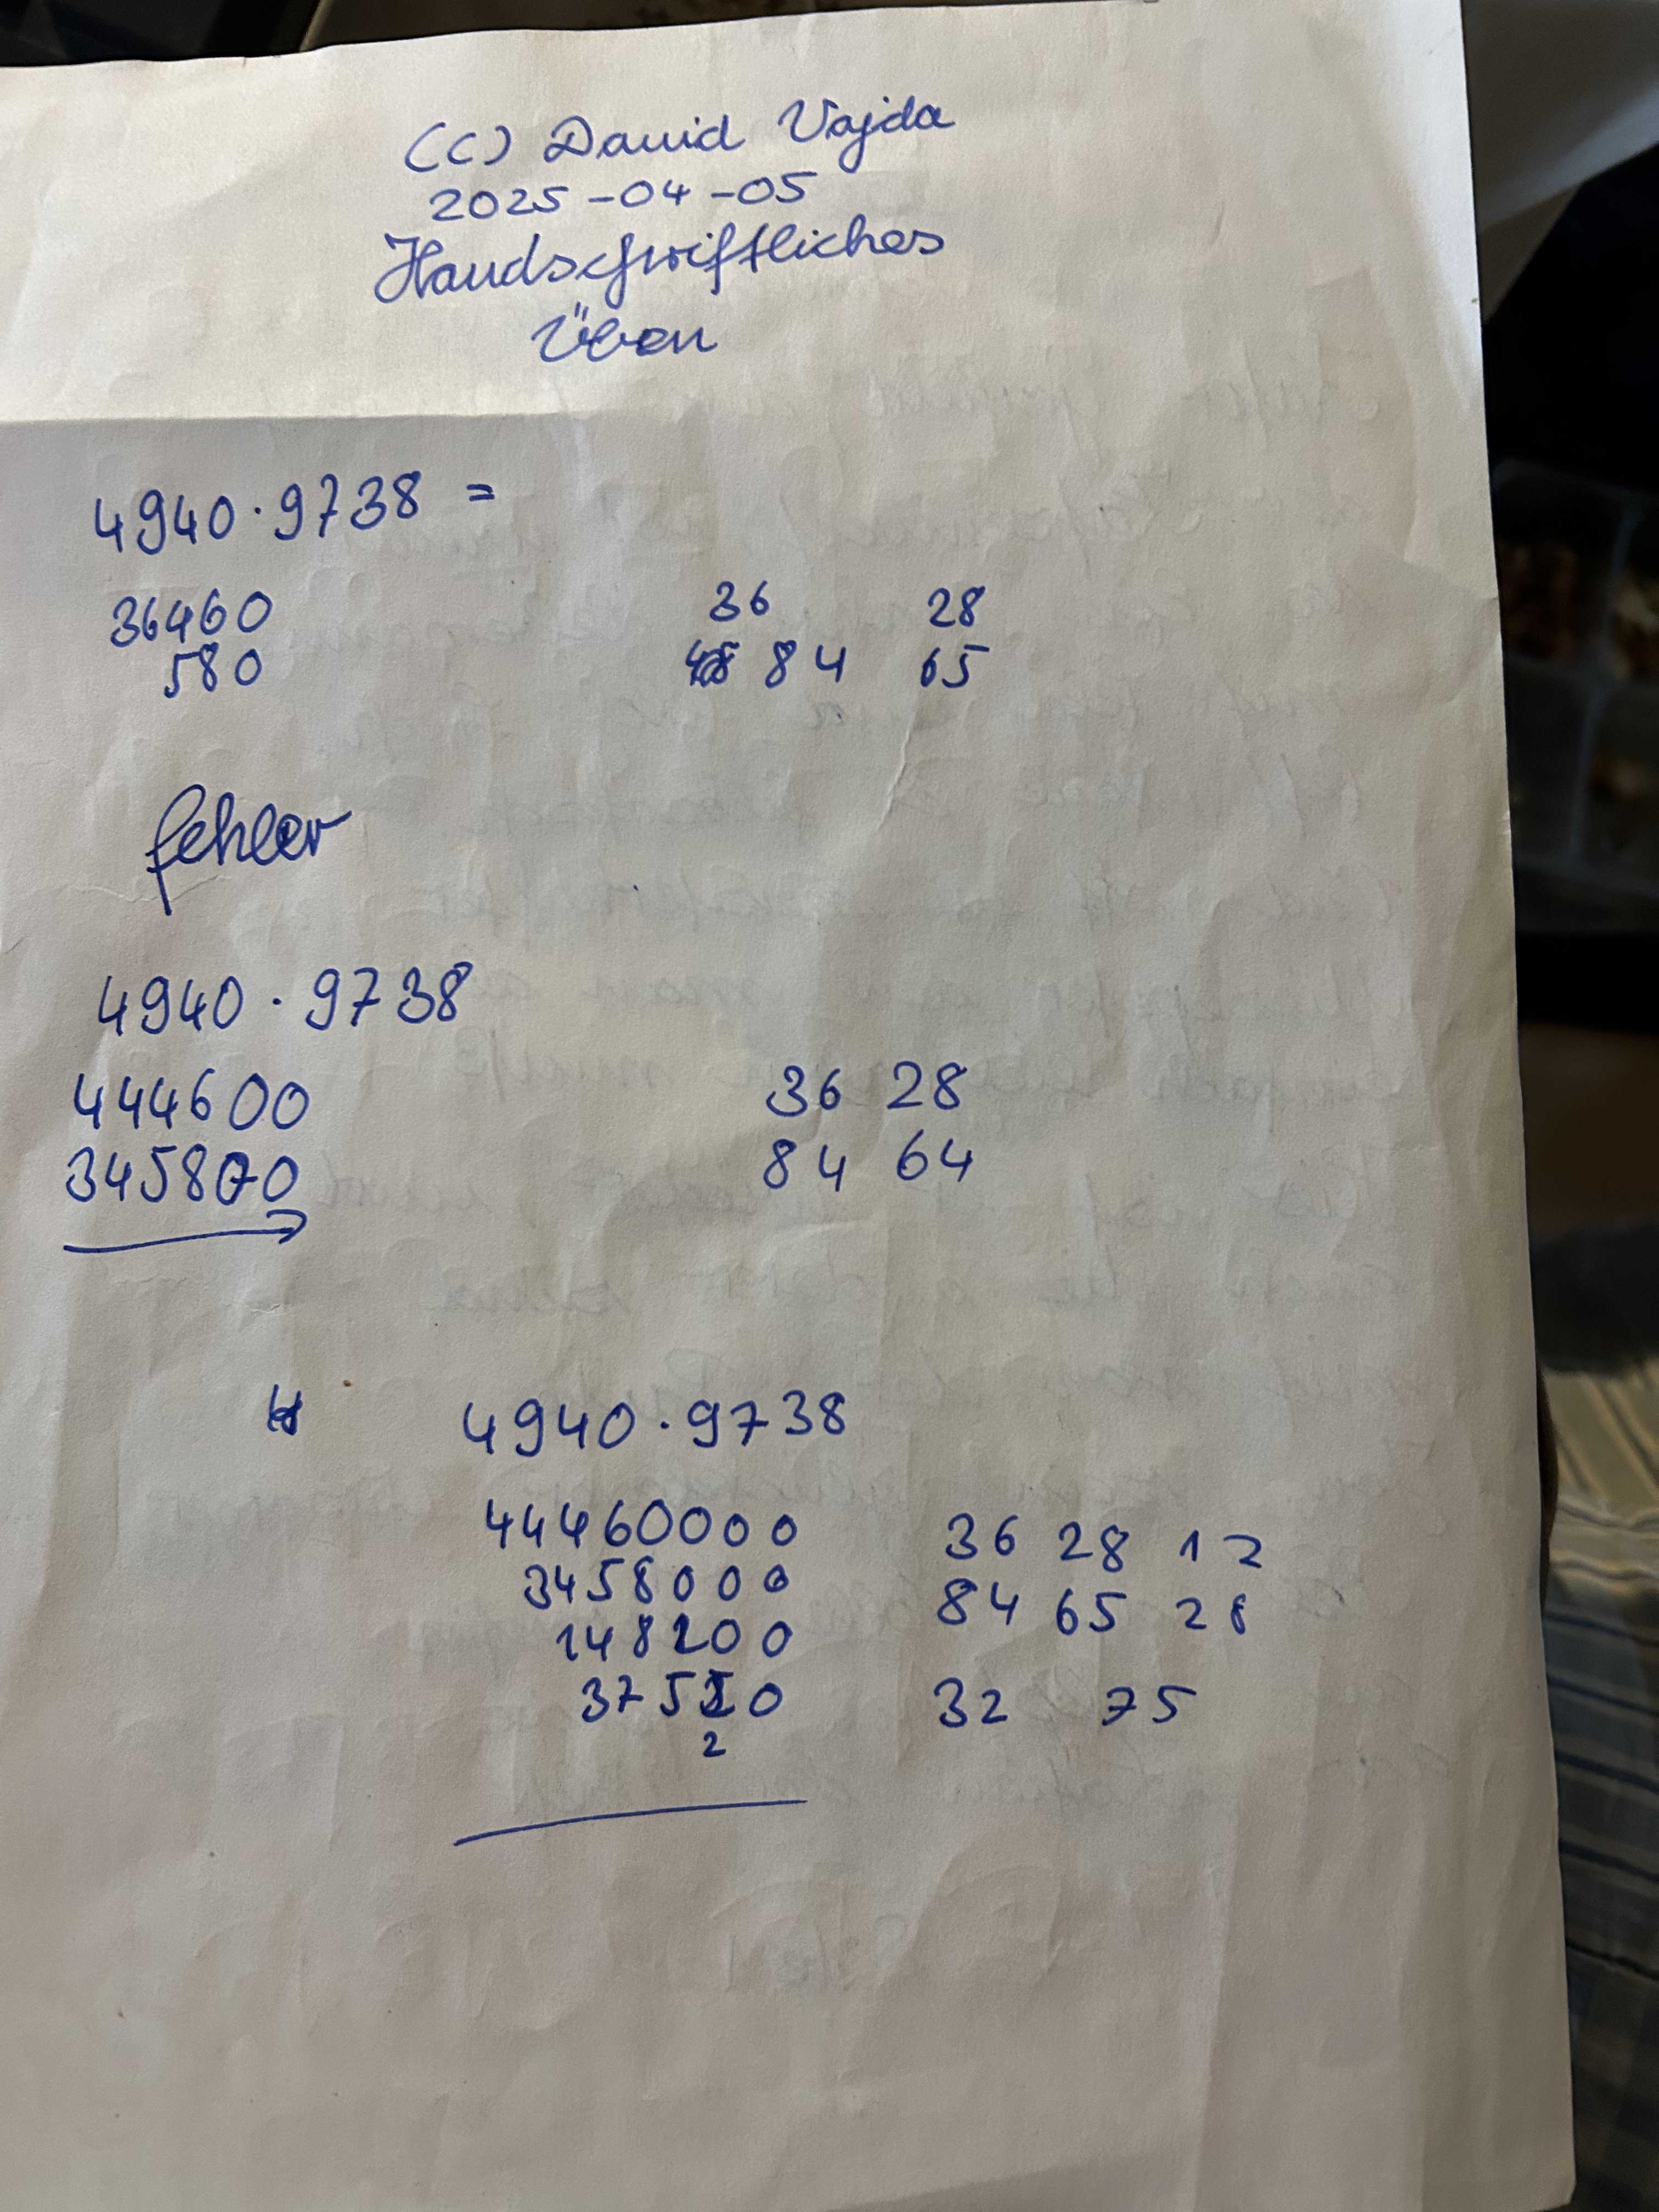 (C) David Vajda
2025-04-05
Handschriftliches
Üben
4940·9738 =
36460 36 28
580 84 65
fehler
4940·9738
444600 36 28
345800 84 64
4940·9738
44460000 36 28 12
3458000 84 65 28
148200 
37520 32 75
2